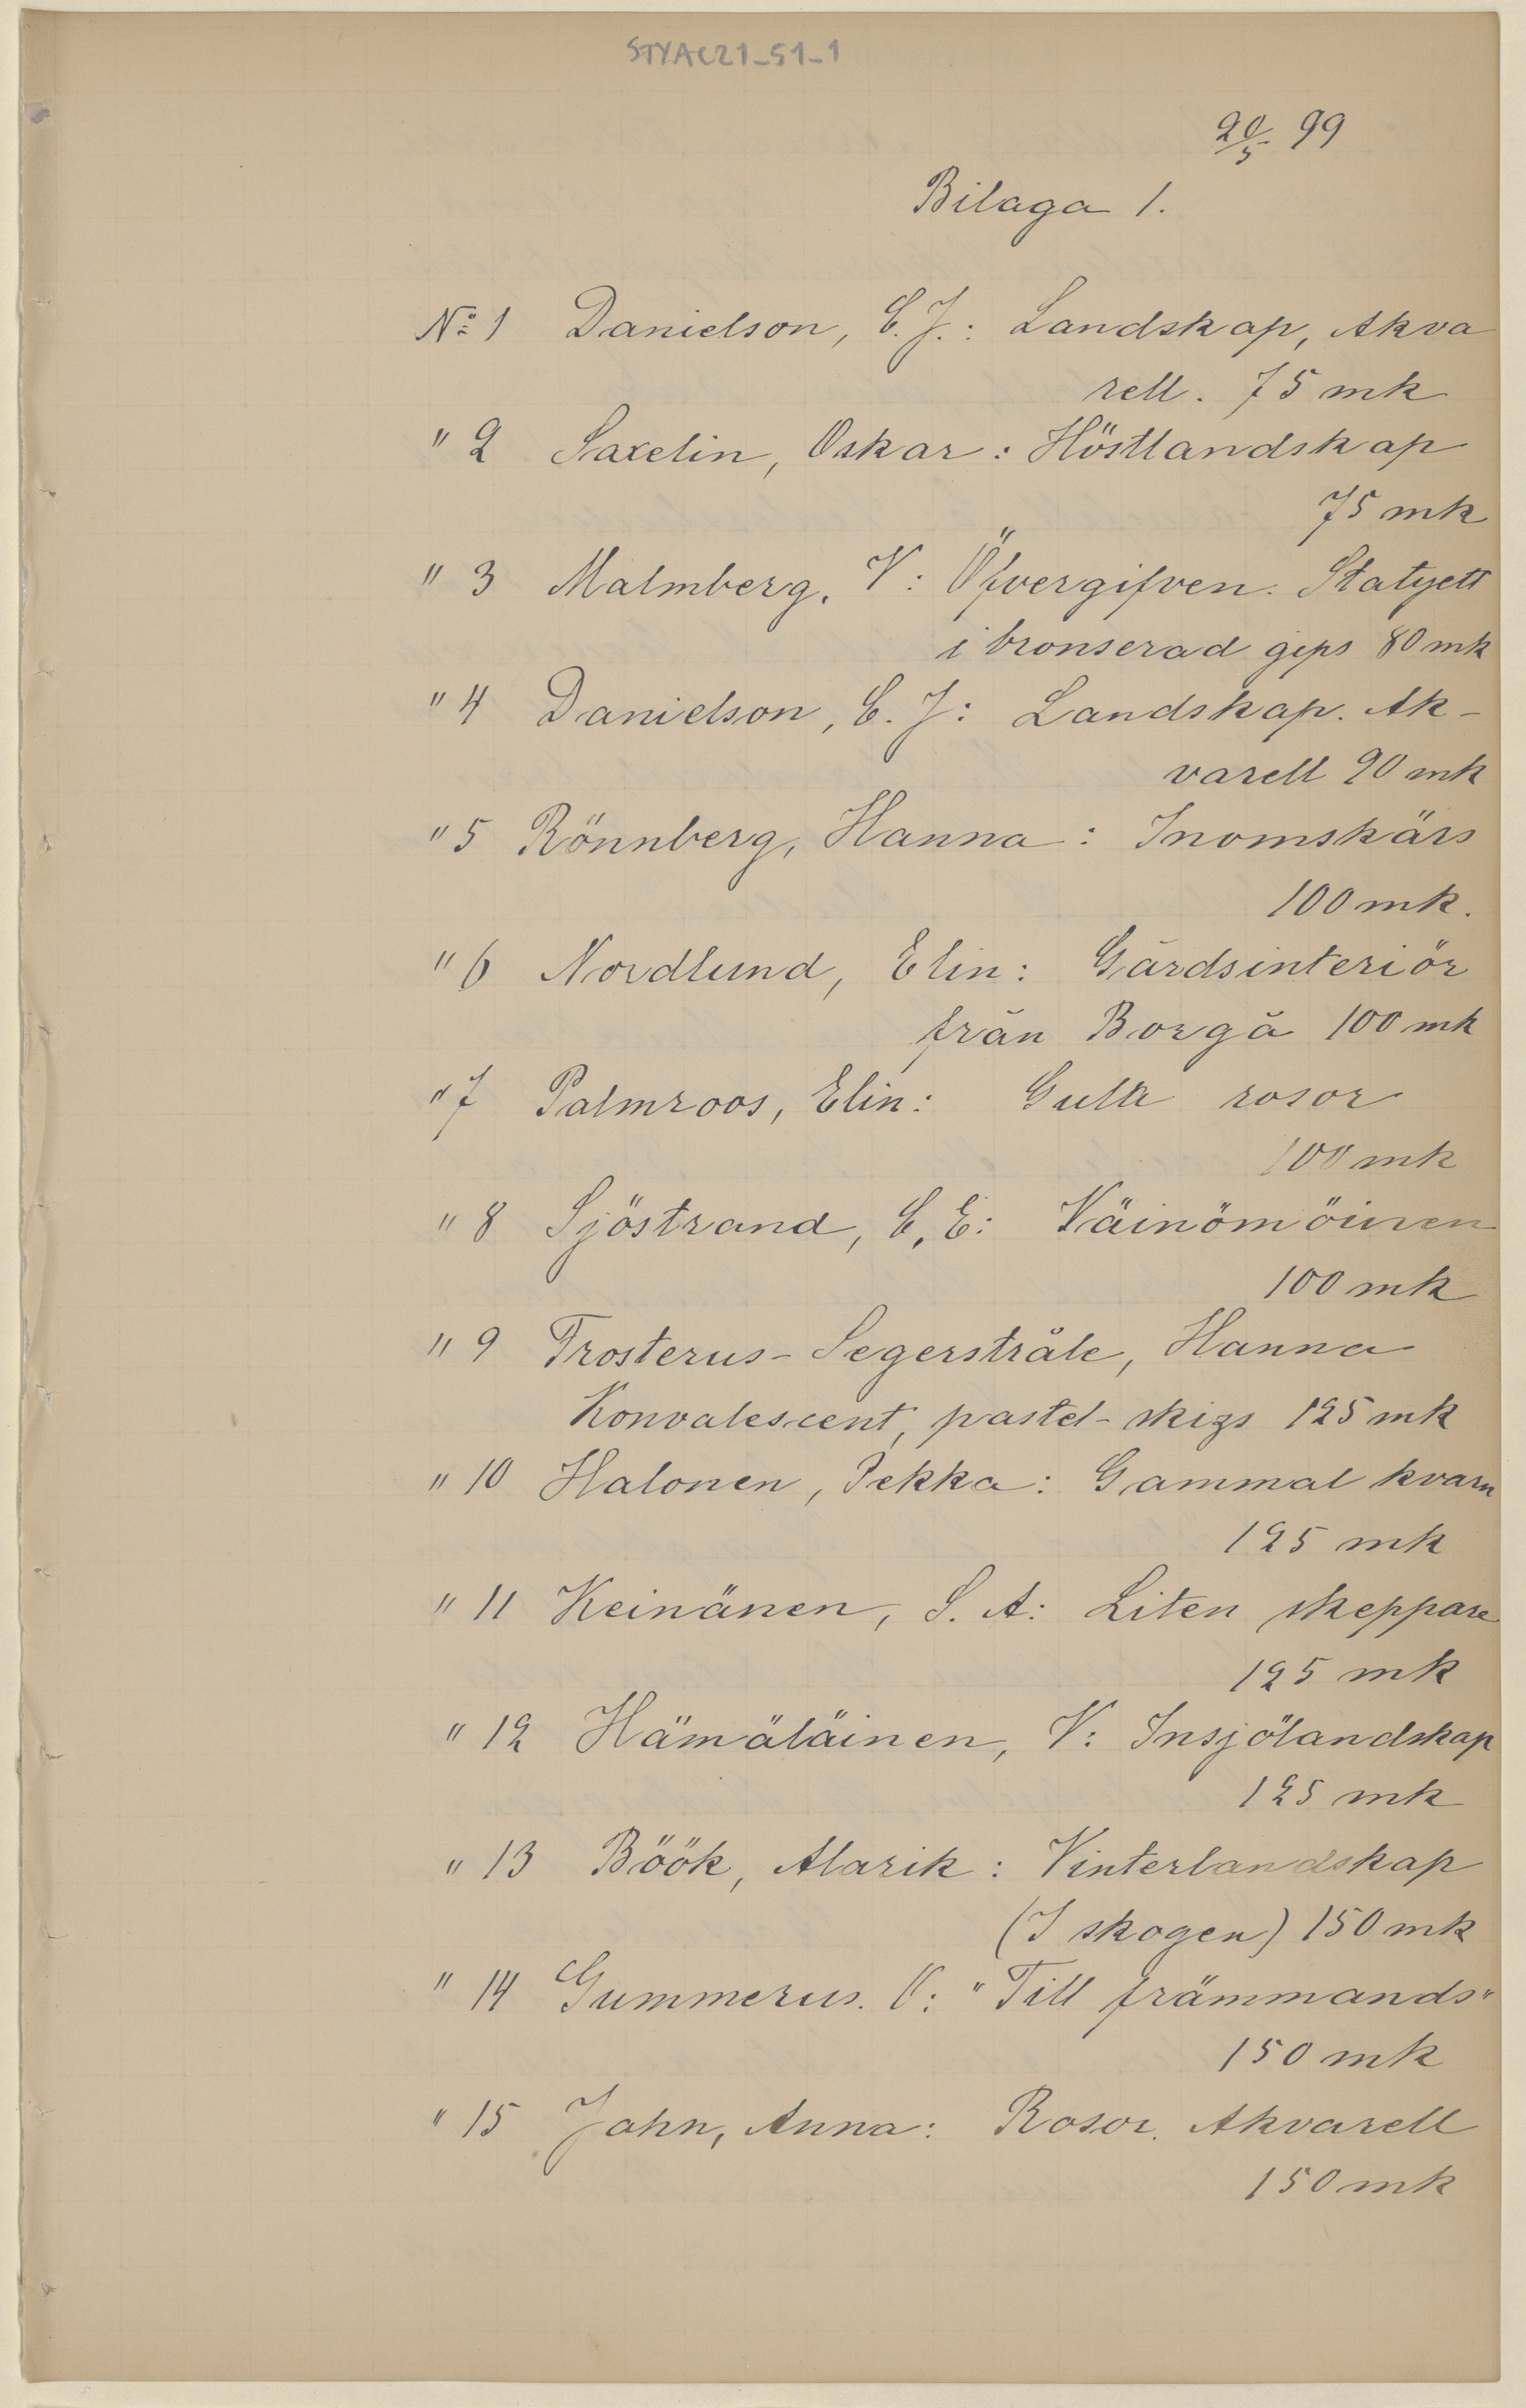 STYAC21_51_1
20/5 99
Bilaga 1.
No 1 Danielson, E. J.: Landskap, Akva
rell. 75 mk
" 2 Saxelin, Oskar: Höstlandskap
75 mk
" 3 Malmberg, V: Öfvergifven. Statyett
i bronserad gips 80 mk
" 4 Danielson, E. J: Landskap. Ak-
varell 90 mk
" 5 Rönnberg, Hanna: Inomskärs
100 mk.
" 6 Nordlund, Elin: Gårdsinteriör
från Borgå 100 mk
" 7 Palmroos, Elin: Gula rosor
100 mk
" 8 Sjöstrand, C. E: Väinömöinen
100 mk
" 9 Frosterus-Segerstråle, Hanna
Konvalescent, pastel-skizs 125 mk
" 10 Halonen, Pekka: Gammal kvarn
125 mk
" 11 Keinänen, S. A: Liten skeppare
125 mk
" 12 Hämäläinen, V: Insjölandskap
125 mk
" 13 Böök, Alarik: Vinterlandskap
(I skogen) 150 mk
" 14 Gummerus. O: "Till främmands"
150 mk
" 15 Jahn, Anna: Rosor. Akvarell
150 mk